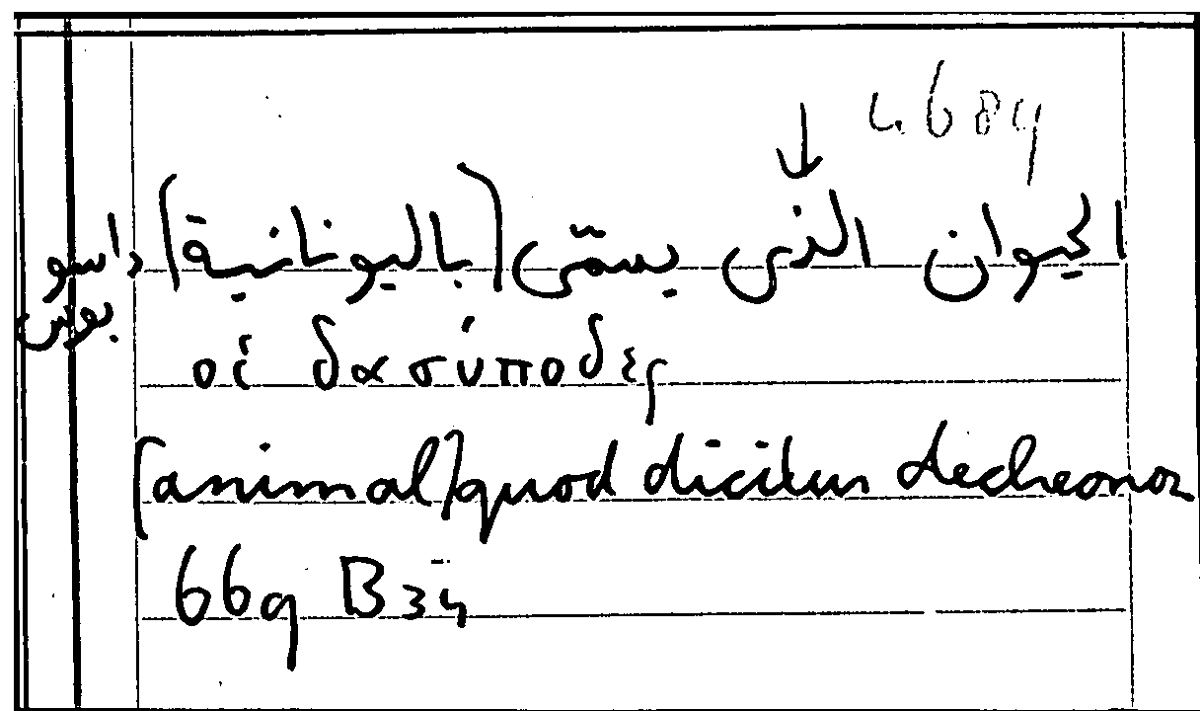 الحيوان الذى يسمّى (باليونانية) داسو
بوس
οἱ δασύποδες
(animal) quod dicitur decheonoz
669 B34